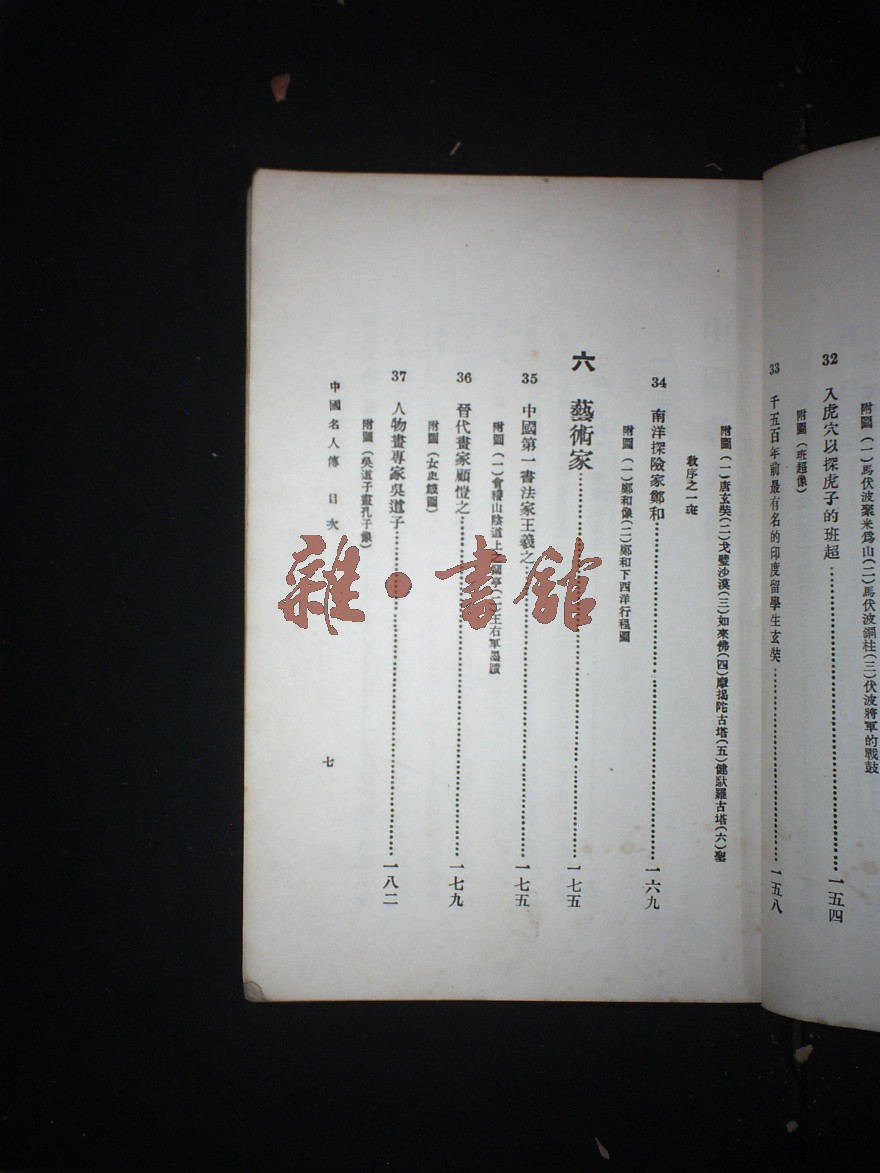 附圖（一）馬伏波聚米爲山（二）馬伏波銅柱（三）伏波將軍的戰鼓
32 入虎穴以探虎子的班超……一五四
附圖（班超像）
33 千五百年前最有名的印度留學生玄奘……一五八
附圖（一）唐玄奘（二）戈壁沙漠（三）如來佛（四）摩揭陀古塔（五）健馱羅古塔（六）聖
敎序之一斑
34 南洋探險家鄭和……一六九
附圖（一）鄭和像（二）鄭和下西洋行程圖
六 藝術家……一七五
35 中國第一書法家王羲之……一七五
附圖（一）會稽山陰道上之蘭亭（二）王右軍墨蹟
36 晉代畫家顧愷之……一七九
附圖（女史箴圖）
37 人物畫專家吳道子……一八二
附圖（吳道子畫孔子像）
中國名人傳 目次
七
雜·書館